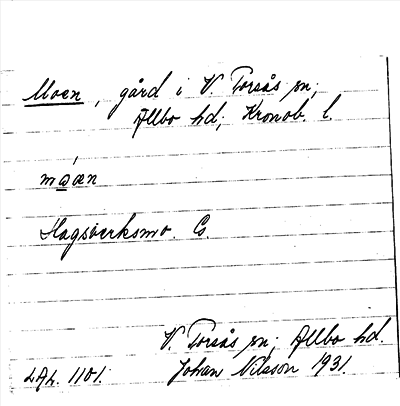 Moen, gård i V. Torsås sn;
Allbo hd; Kronob. l.
maan
Hagsverksmo. G.
V. Torsås sn; Allbo hd.
LAL. 1101. Johan Nilsson 1931.